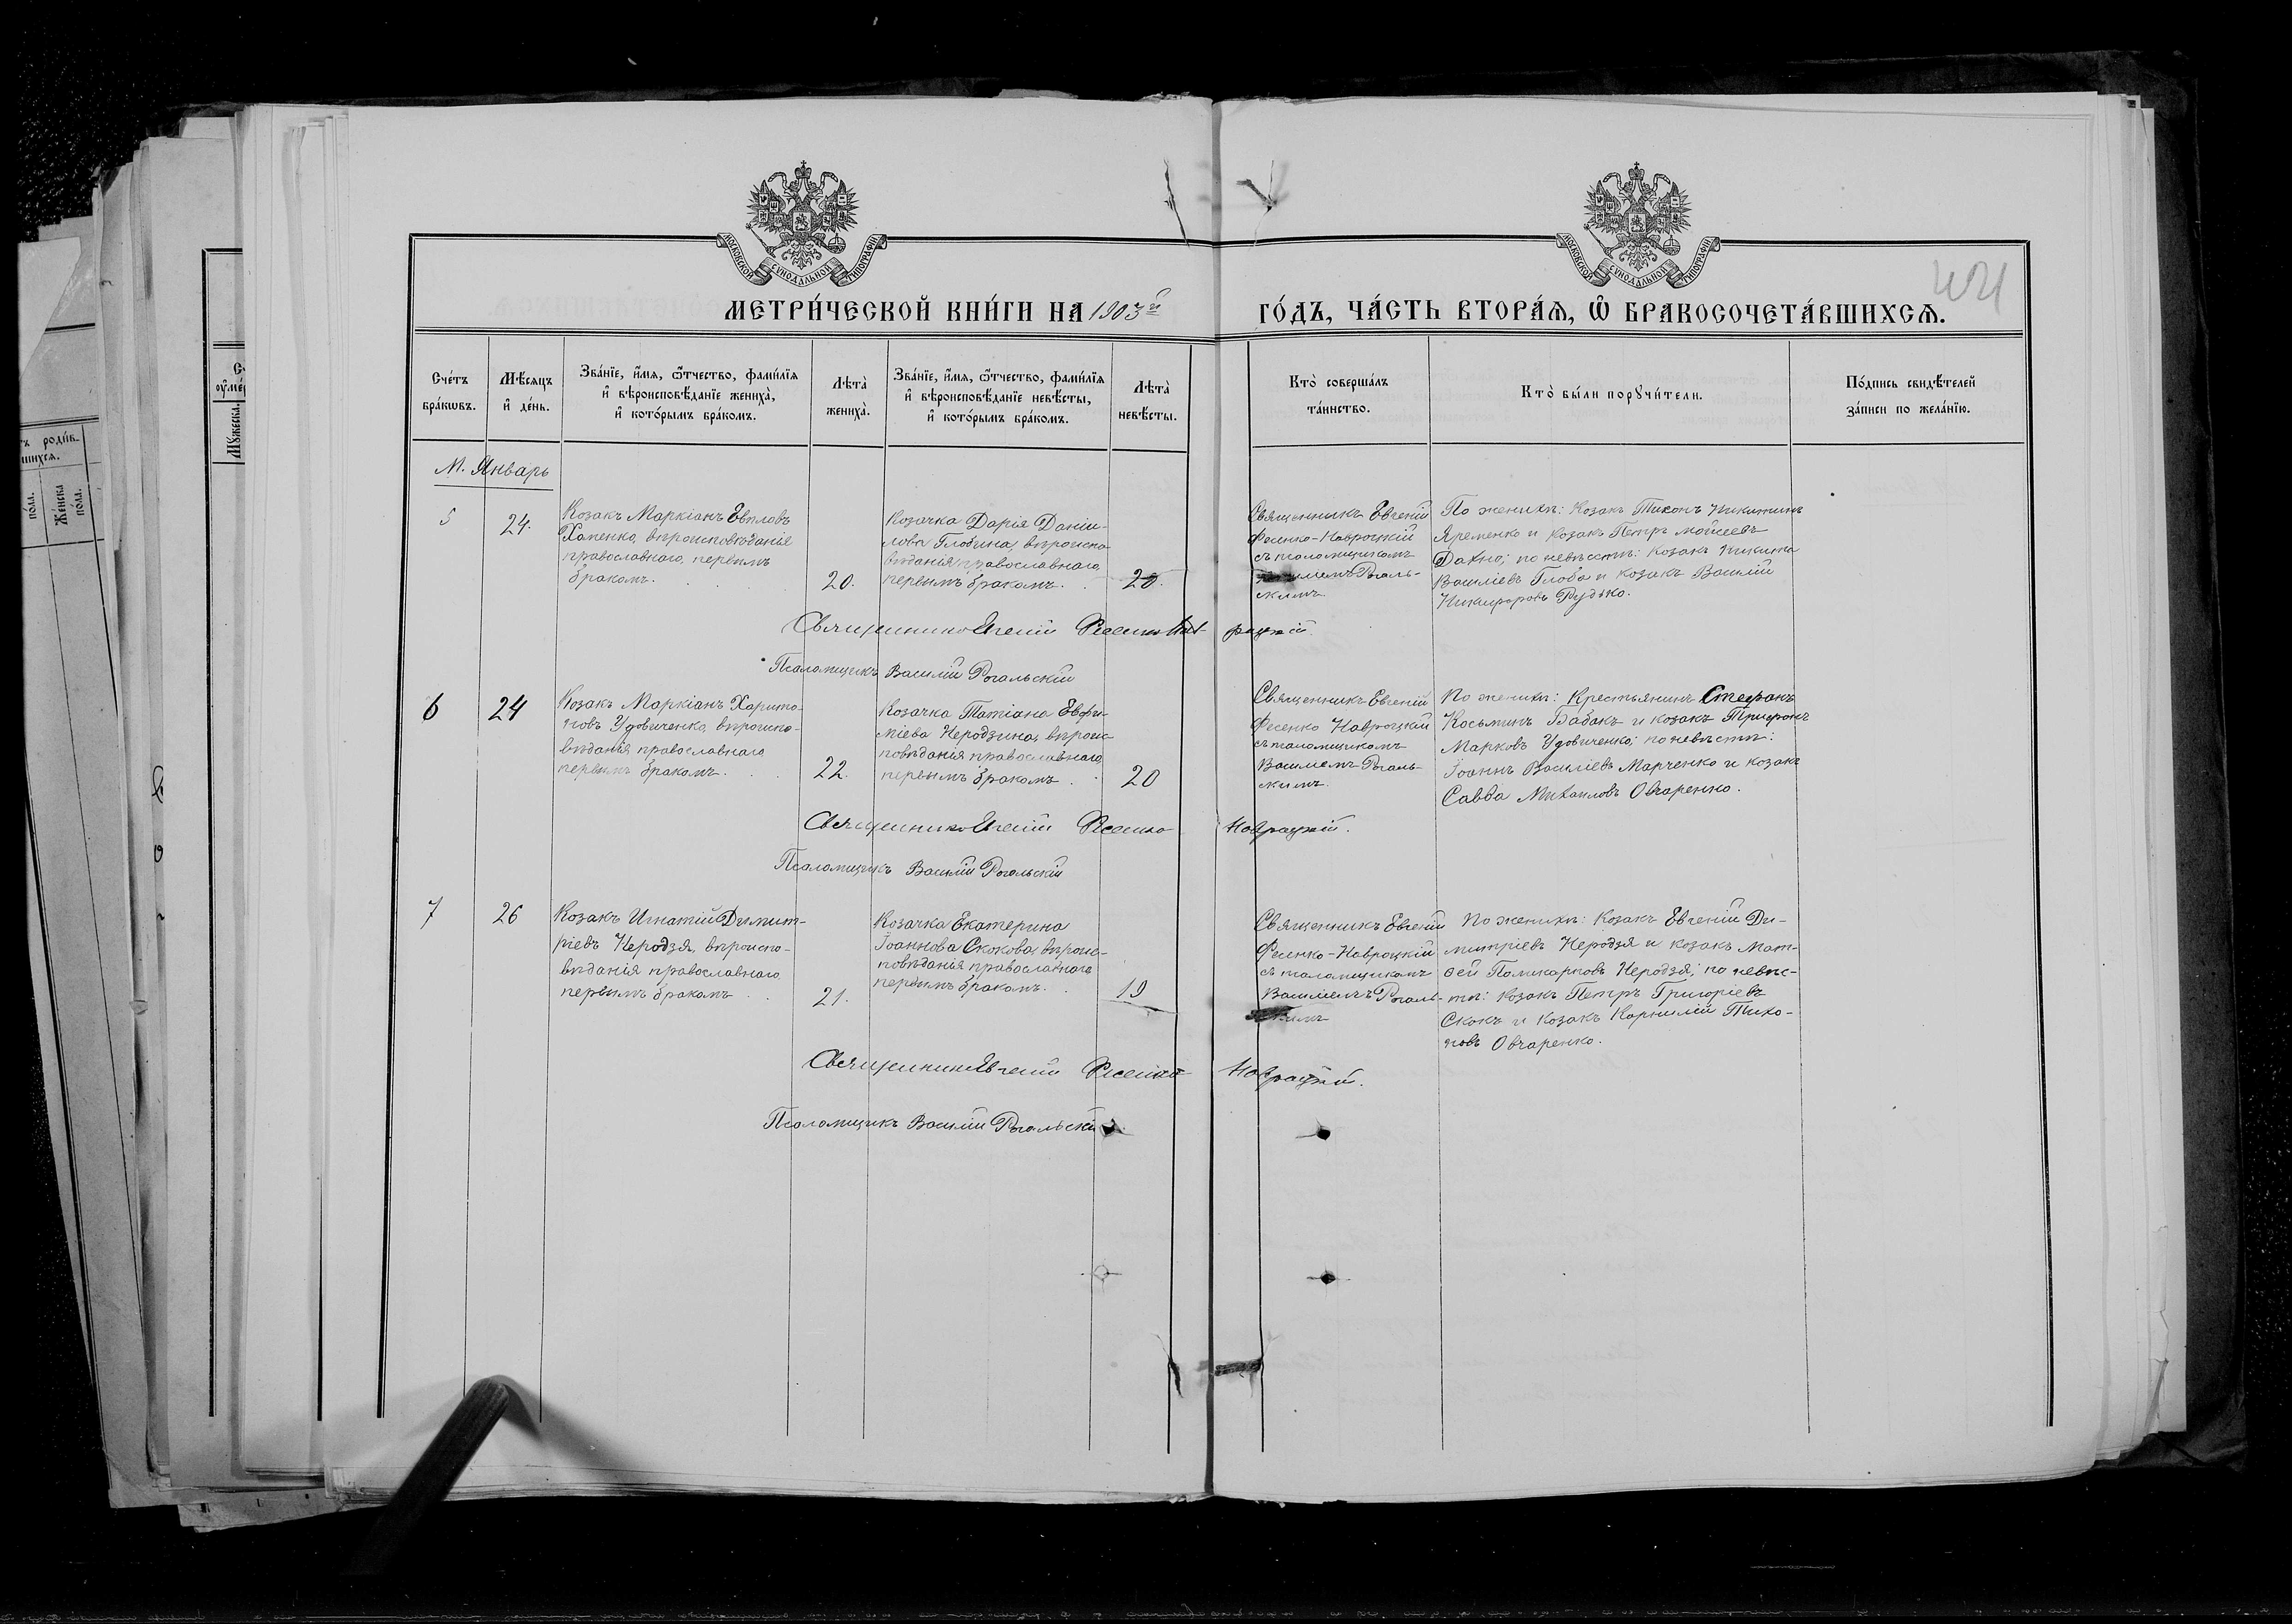 МОСКОВСКОЙ СУНОДАЛЬНОЙ ТИПОГРАФІИ
МОСКОВСКОЙ СУНОДАЛЬНОЙ ТИПОГРАФІИ
МЕТРИ́ЧЕСКОЙ КНИ́ГИ НА 1903й ГО́ДЪ, ЧА́СТЬ ВТОРА́Ѧ, Ѽ БРАКОСОЧЕТА́ВШИХСѦ.
Сче́тъ бра́кѡвъ.
Мѣ́сяцъ и҆ де́нь.
Зва́нїе, и҆́мя, ѻ҆́тчество, фами́лїя
и҆ вѣроисповѣ́данїе жениха̀,
и҆ кото́рымъ бра́комъ.
Лѣта̀ жениха̀.
Зва́нїе, и҆́мя, ѻ҆́тчество, фами́лїя
и҆ вѣроисповѣ́данїе невѣ́сты,
и҆ кото́рымъ бра́комъ.
Лѣта̀ невѣ́сты.
Кто̀ соверша́лъ
та́инство.
Кто̀ бы́ли порꙋчи́тели.
По́дпись свидѣ́телей
за́писи по жела́нїю.
М. Январь
5
24.
Козакъ Маркіанъ Евпловъ
Хапенко, вѣроисповѣданіе
православнаго, первымъ
бракомъ.
20.
Козачка Дарія Даніи-
лова Глобина, вѣроиспо
вѣданія православнаго,
первымъ бракомъ.
20.
Священникъ Евгеній
Фесенко-Навроцкій
съ псаломщикомъ
Рогаль-
скимъ
По женихѣ: Козакъ Тихонъ Никитинъ
Яременко и козакъ Петръ Моѵсеевъ
Дахно; по невѣстѣ: козакъ Никита
Василіевъ Глоба и козакъ Василій
Никифоровъ Рудько.
Священникъ Евгеній Фесенко Нав-роцкій.
Псаломщикъ Василій Рогальскій
6
24
Козакъ Маркіанъ Харито-
новъ Удовиченко, вѣроиспо-
вѣданія православнаго
первымъ бракомъ.
22.
Козачка Татіана Евфи-
міева Неродзина, вѣроис-
повѣданія православнаго
первымъ бракомъ.
20
Священникъ Евгеній
Фесенко Навроцкій
съ псаломщикомъ
Василіемъ Рогаль-
скимъ
По женихѣ: Крестьянинъ Стефанъ
Косьминъ Бабакъ и козакъ Трифонъ
Марковъ Удовиченко; по невѣстѣ:
Іоаннъ Василіевъ Марченко и козакъ
Савва Михаиловъ Овчаренко.
Священникъ Евгеній Фесенко Навроцкій.
Псаломщикъ Василій Рогальскій
7
26
Козакъ Игнатій Димит-
ріевъ Неродзя, вѣроиспо-
вѣданія православнаго
первымъ бракомъ
21.
Козачка Екатерина
Іоаннова Скокова, вѣроис-
повѣданія православнаго
первымъ бракомъ.
19
Священникъ Евгеній
Фесенко-Навроцкій
съ псаломщикомъ
Василіемъ Рогаль-
скимъ
По женихѣ: Козакъ Евгеній Ди-
митріевъ Неродзя и козакъ Мат-
ѳей Поликарповъ Неродзя; по невѣс-
тѣ: козакъ Петръ Григоріевъ
Скокъ и козакъ Корнилій Тихо-
новъ Овчаренко.
Священникъ Евгеній Фесенко Навроцкій.
Псаломщикъ Василій Рогальскій